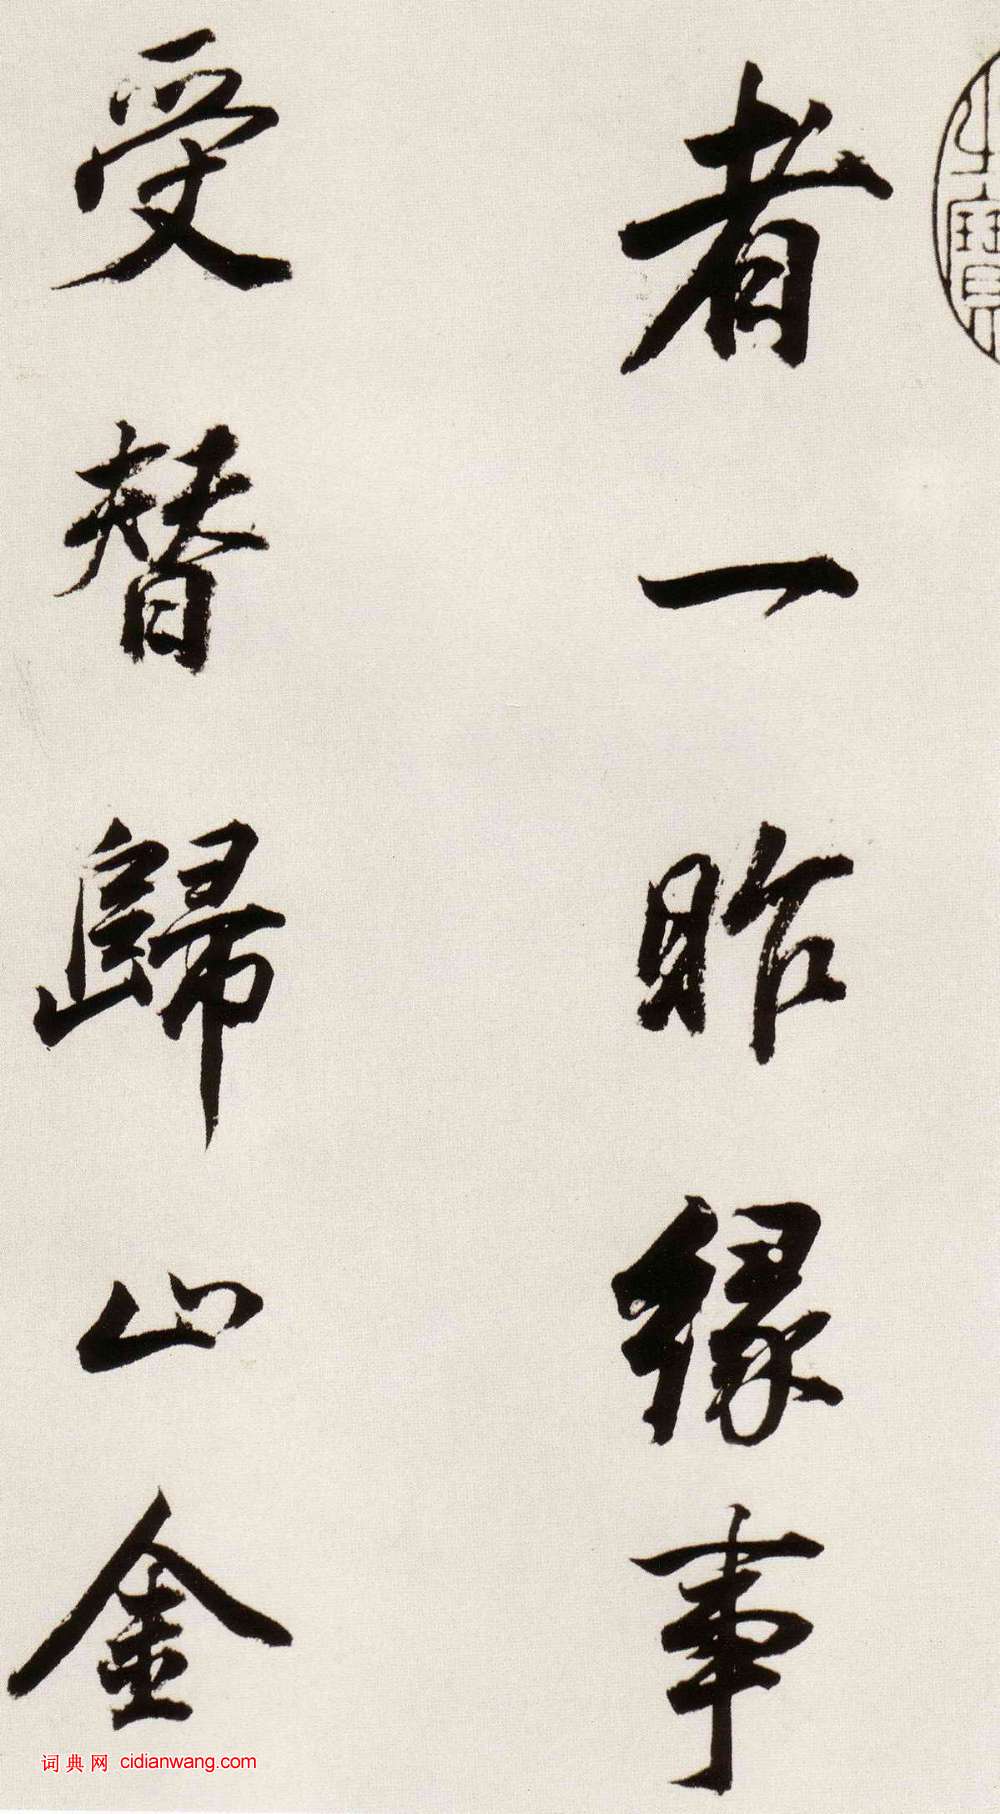 者一昨緣事
受替歸山金
之寶
词典网 cidianwang.com